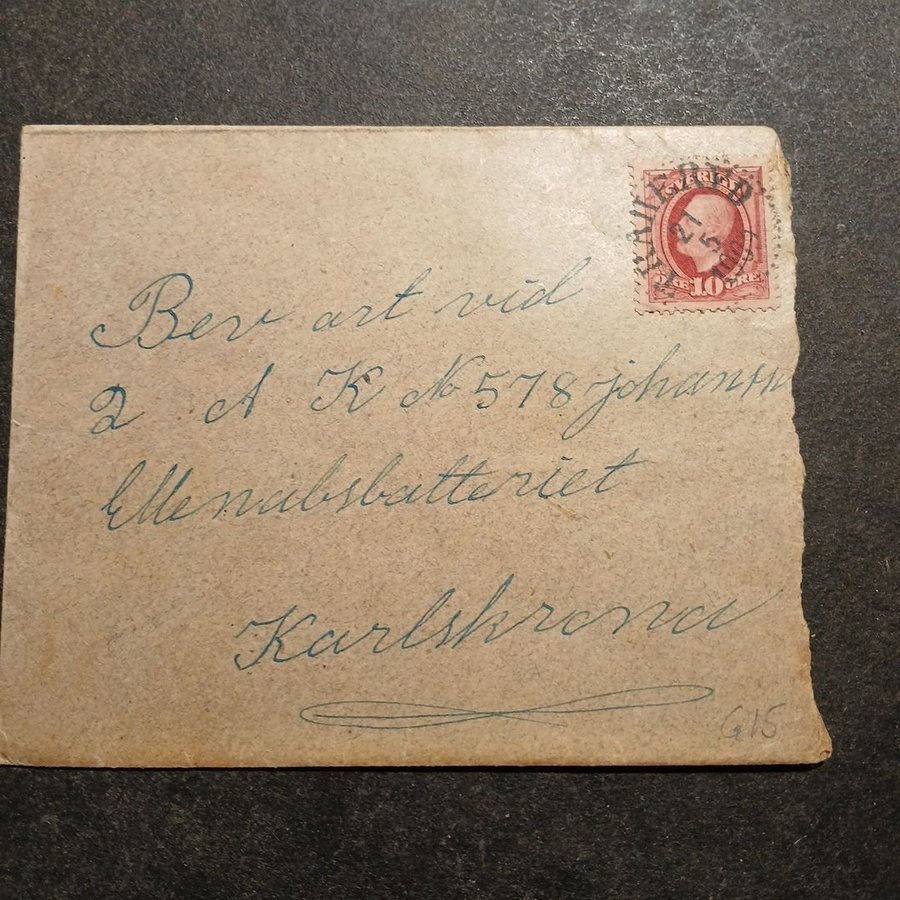 SVERIGE
21
5
10
ÖRE ÖRE
Bev art vid
2 A K No 578 johansn
Ellenabsbatteriet
Karlskrona
G15